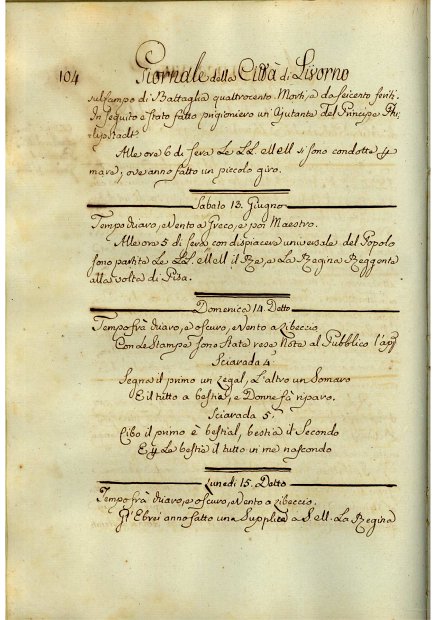 104 Giornale della Città di Livorno
sul Campo di Battaglia quattrocento Morti, e da seicento feriti.
In seguito è stato fatto prigioniero un' Ajutante del Principe Phi-
lipstadt.
Alle ore 6 di sera Le LL. MM si sono condotte
mare, ove anno fatto un piccolo giro.
Sabato 13. Giugno
Tempo chiaro, e Vento a Greco, e poi Maestro.
Alle ore 5 di sera con dispiacere universale del Popolo
sono partite Le LL. MM il Re, e La Regina Reggente
alla volta di Pisa.
Domenica 14. Detto
Tempo frà chiaro, e oscuro, e Vento a Libeccio
Con le Stampe sono state rese Note al Pubblico l'app.
Sciarada 4.
Segna il primo un Regal, e L'altro un Somaro
E il tutto a bestie, e Donne fà riparo.
Sciarada 5.
Cibo il primo è bestial, bestia il Secondo
E Le bestie il tutto in me nascondo
Lunedi 15. Detto
Tempo frà chiaro, e oscuro, e Vento a Libeccio.
Gl' Ebrei anno fatto una Supplica a S. M. La Regina